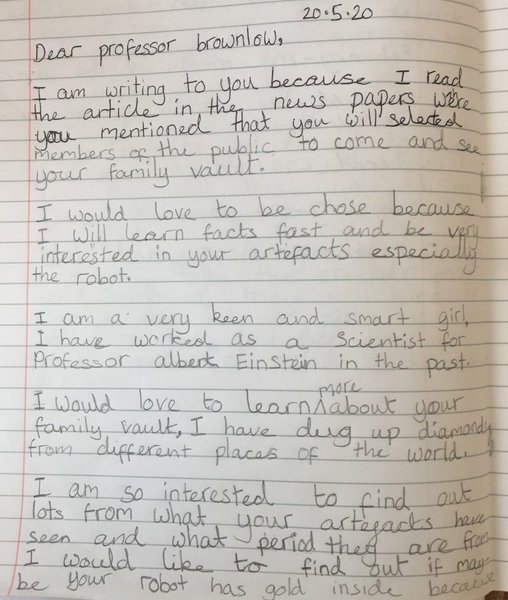 20.5.20
Dear professor brownlow,
I am writing to you because I read
the article in the news papers were
you mentioned that you will selected
members of the public to come and see
your family vault.
I would love to be chose because
I will learn facts fast and be very
interested in your artefacts especially
the robot.
I am a very keen and smart girl,
I have worked as a Scientist for
Professor albert Einstein in the past.
more
I would love to learn ^ about your
family vault, I have dug up diamonds
from different places of the world.
I am so interested to find out
lots from what your artefacts have
seen and what period they are from
I would like to find out if may-
be your robot has gold inside because